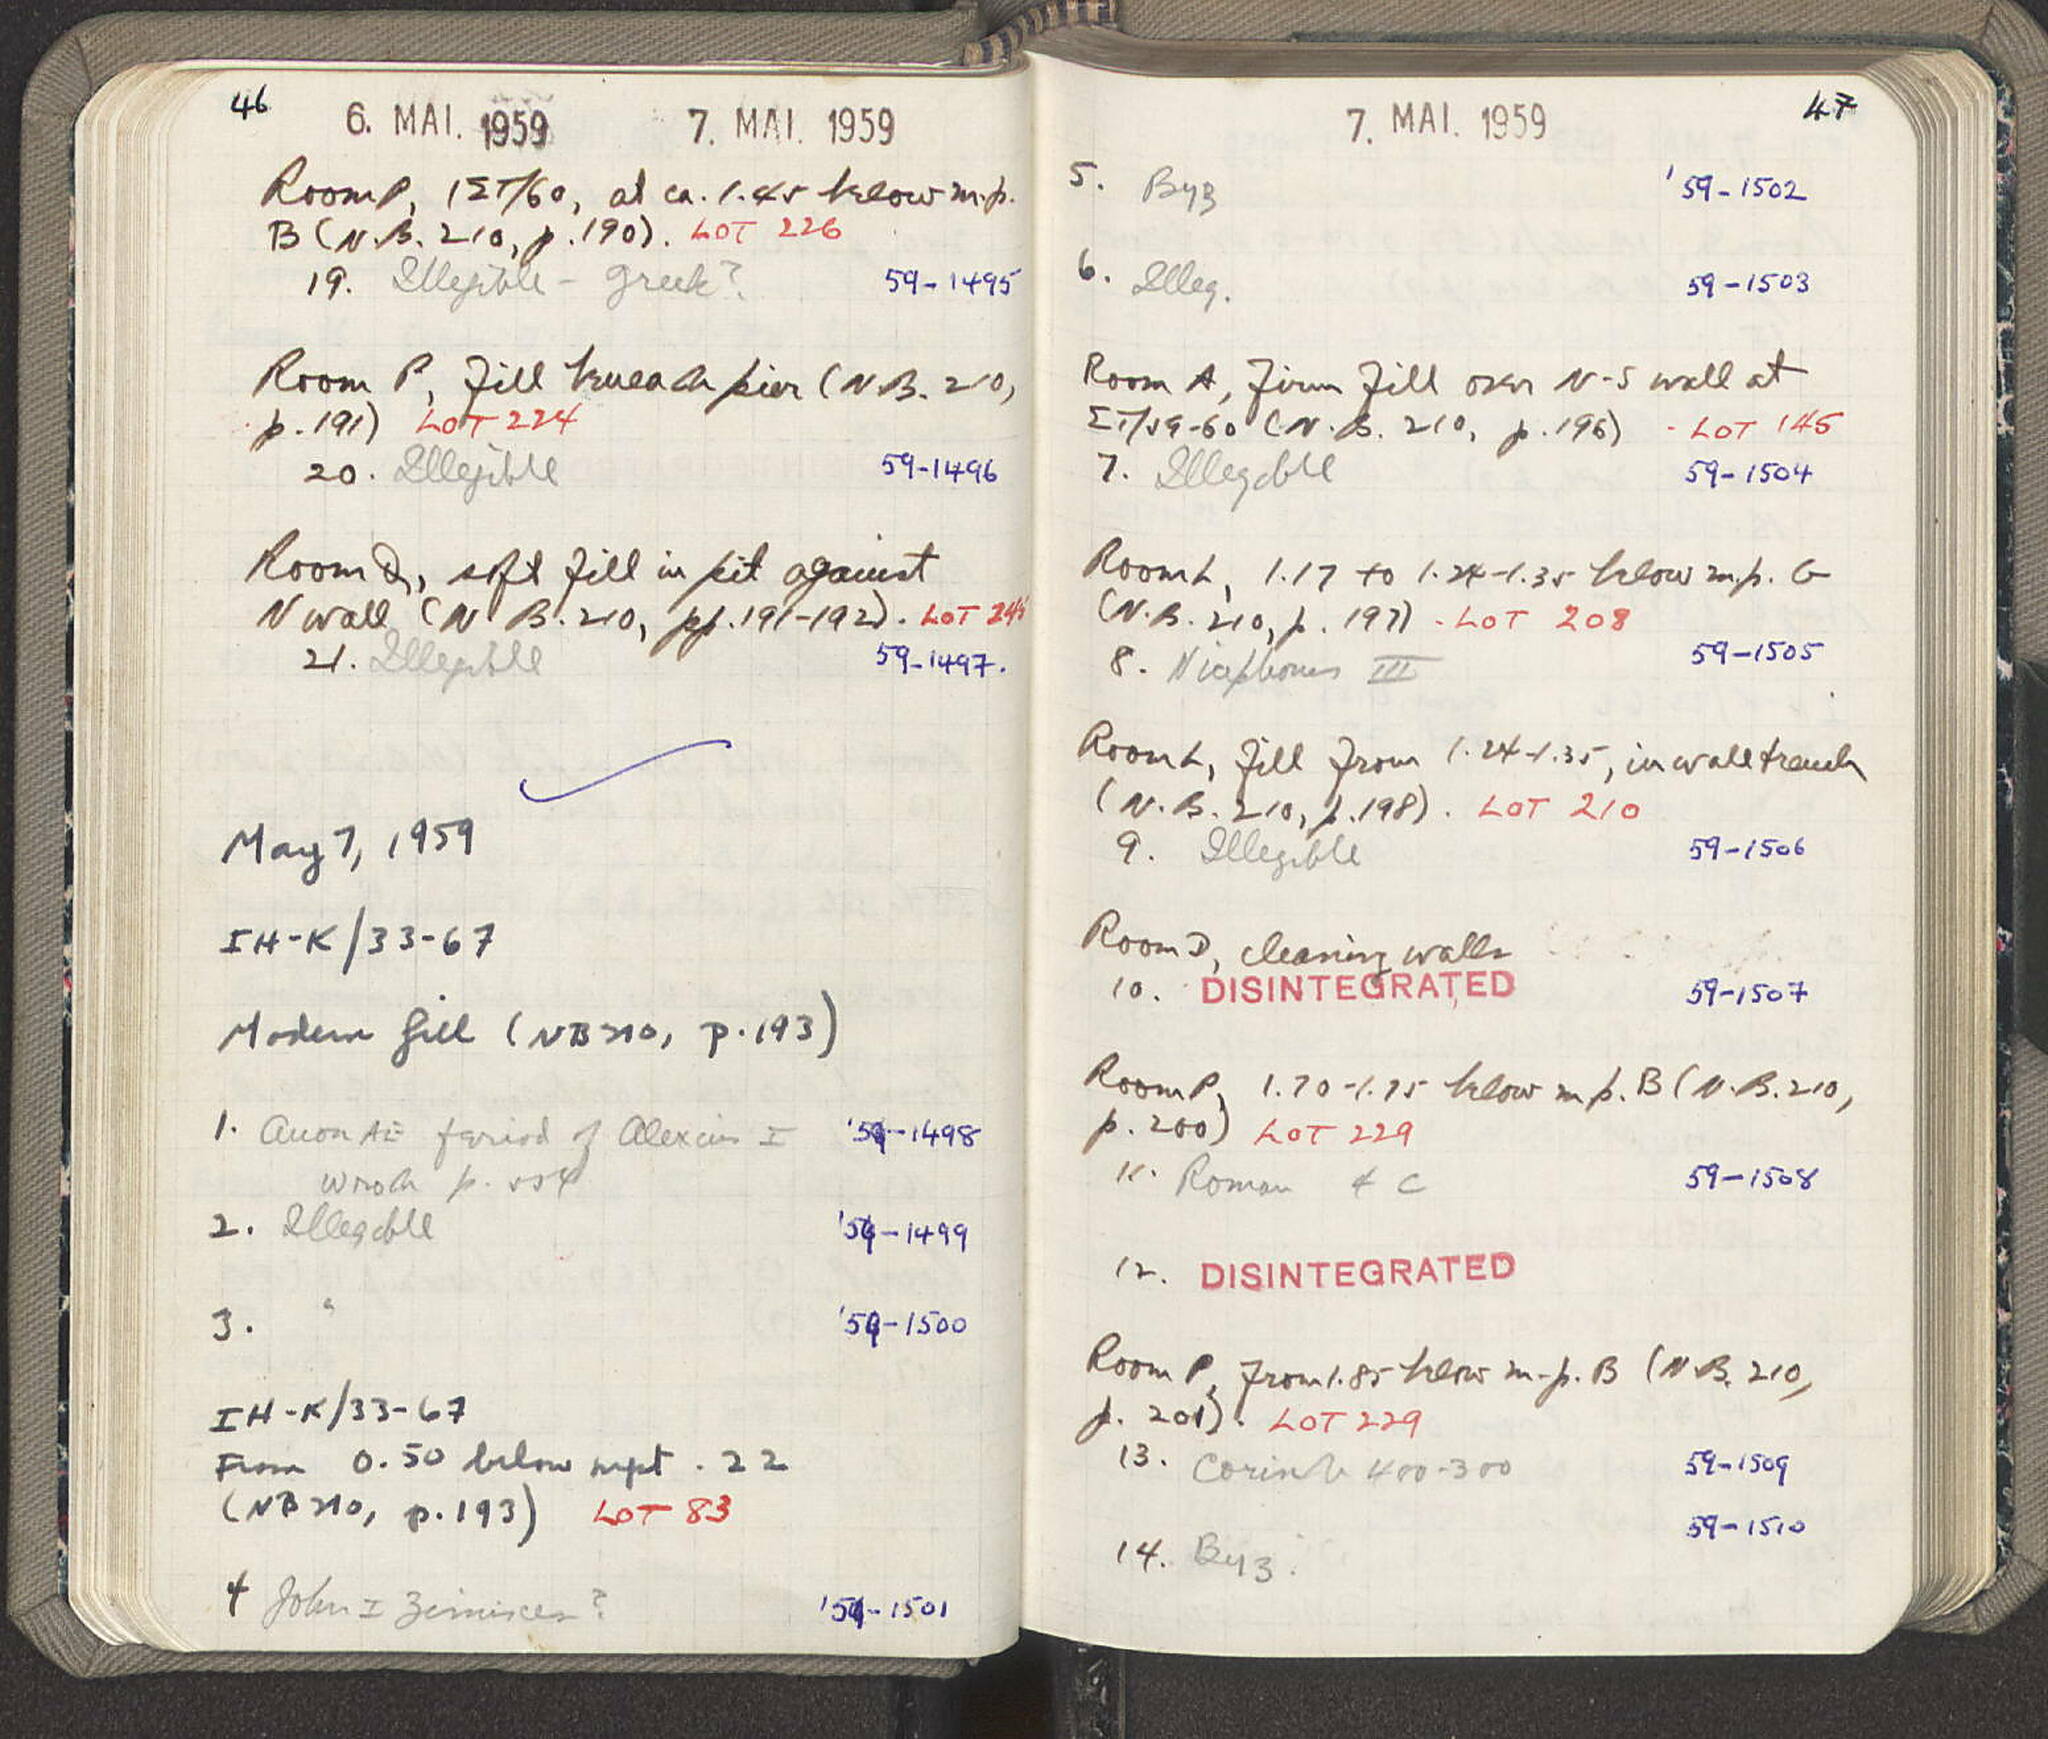 46
6. MAI. 1959 7. MAI. 1959
Room P, ΙΣΤ/60, at ca. 1.45 below m.p.
B (N.B. 210, p. 190). LOT 226
19. Illegible - Greek? 59-1495
Room P, fill beneath pier (N.B. 210,
p. 191) LOT 224
20. Illegible 59-1496
Room, soft fill in pit against
N wall (N.B. 210, pp. 191-192). LOT
21. Illegible 59-1497.
May 7, 1959
IH-K/33-67
Modern fill (NB 210, p. 193)
1. Anon AE period of Alexius I '59-1498
Wroth p. 554
2. Illegible '59-1499
3. " '59-1500
IH-K/33-67
From 0.50 below mpt. 22
(NB 210, p. 193) LOT 83
4 John I Zimisces? '59-1501
47
7. MAI. 1959
5. Byz '59-1502
6. Illeg. 59-1503
Room A, firm fill over N-S wall at
ΣΤ/59-60 (N.B. 210, p. 196) - LOT 145
7. Illegible 59-1504
Room L, 1.17 to 1.24-1.35 below m.p. G
(N.B. 210, p. 197) - LOT 208
8. Nicephorus III 59-1505
Room L, fill from 1.24-1.35, in wall trench
(N.B. 210, p. 198). LOT 210
9. Illegible 59-1506
Room D, cleaning walls
10. DISINTEGRATED 59-1507
Room P, 1.70-1.75 below m.p. B (N.B. 210,
p. 200) LOT 229
11. Roman 4 C 59-1508
12. DISINTEGRATED
Room P, from 1.85 below m.p. B (N.B. 210,
p. 201). LOT 229
13. Corinth 400-300 59-1509
59-1510
14. Byz.